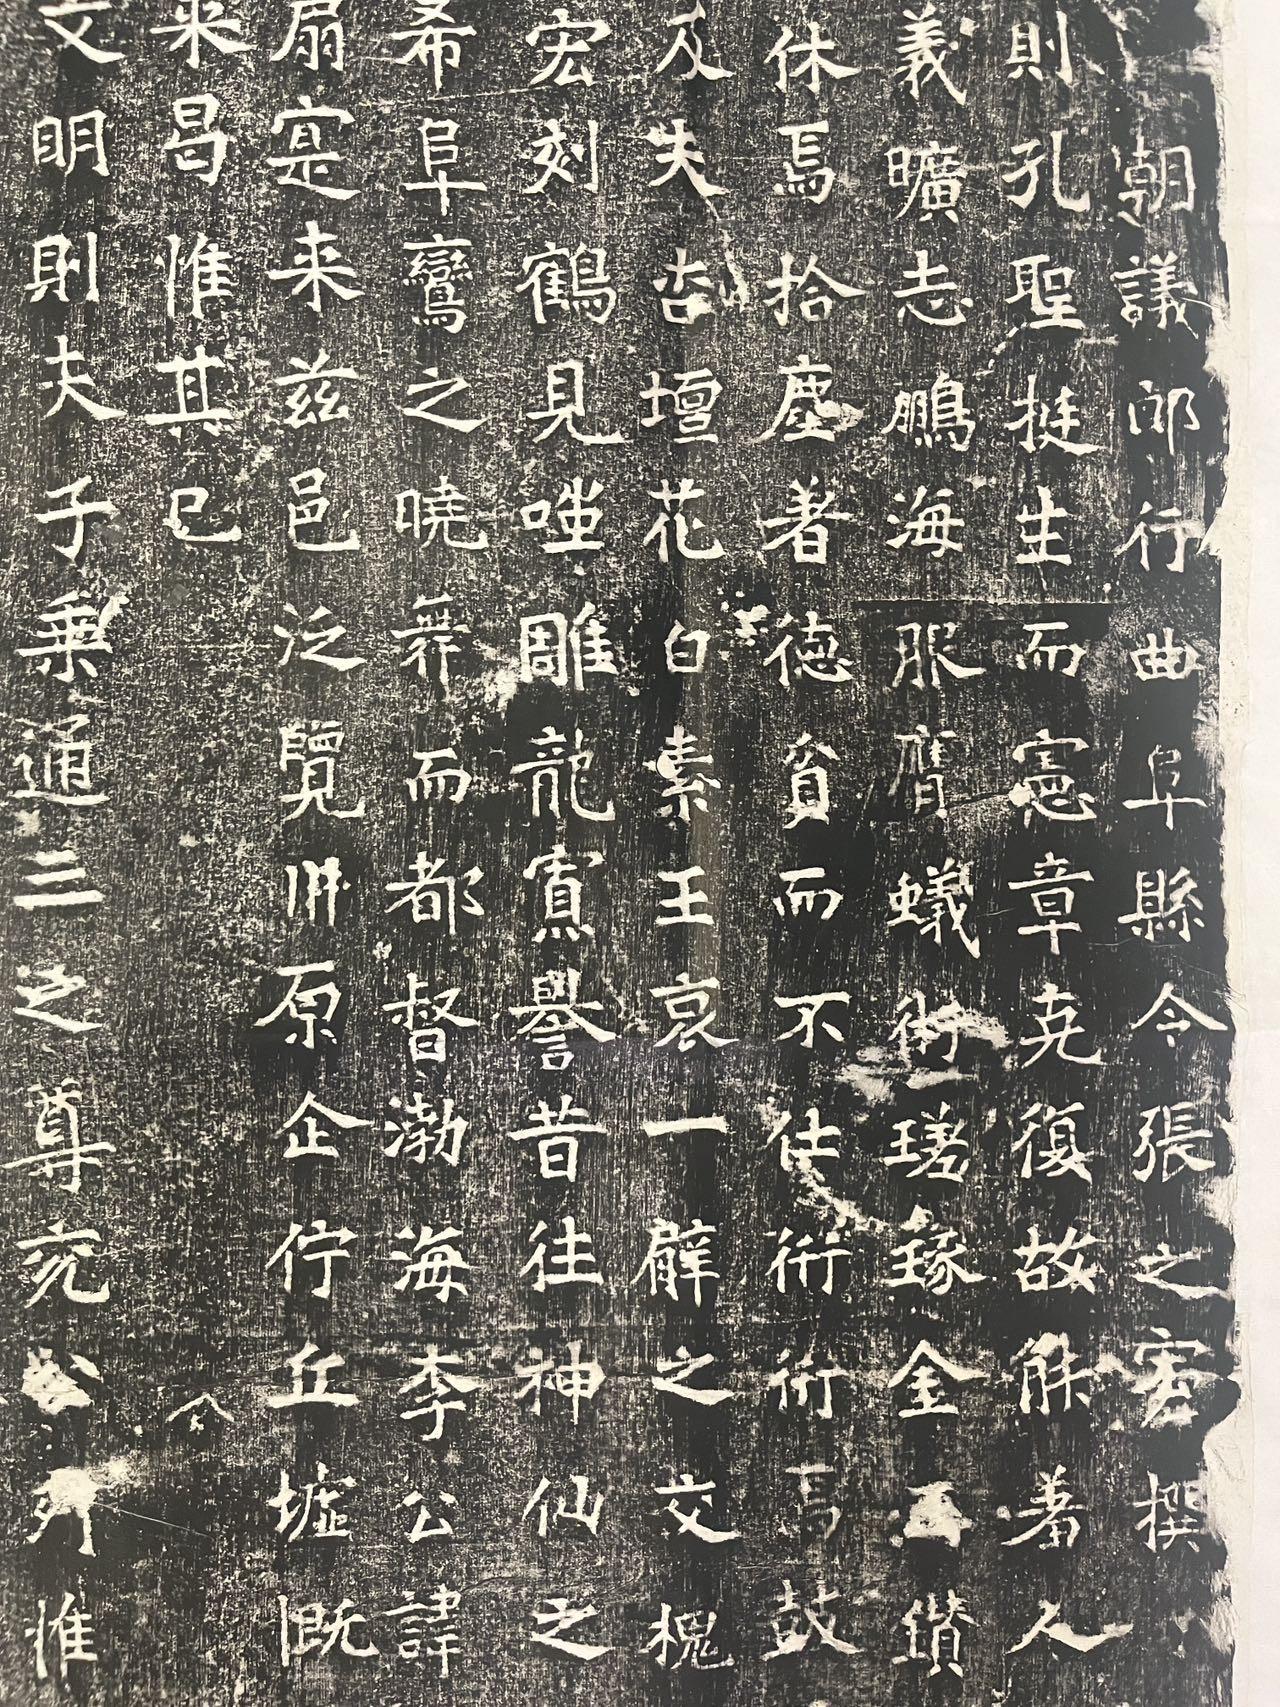 朝議郎行曲阜縣令張之宏撰
則孔聖挺生而憲章堯復故能著人
義曠志鵬海服膺蟻術瑳錄金石鑽
休焉拾塵著德貧而不仕衎衎焉鼓
及失杏壇花白素王哀一辟之交槐
宏刻鶴見嗤雕龍寡譽昔往神仙之
希阜鸞之曉莽而都督渤海李公諱
扇寔来兹邑泛覽川原企佇丘墟慨
来曷惟其已
文明則夫子乗通三之尊兖公列惟